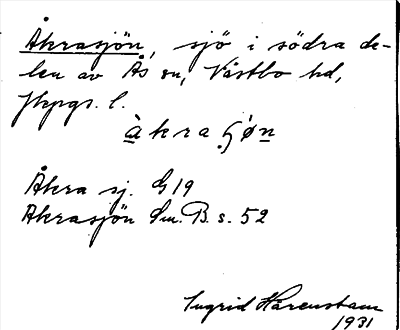 Åkrasjön, sjö i södra de-
len av Ås sn, Västbo hd,
Jkpgs. l.
àkraʂø̀n
Åkra sj. G 19
Åkrasjön Sm. B. s. 52
Ingrid Härenstam
1931